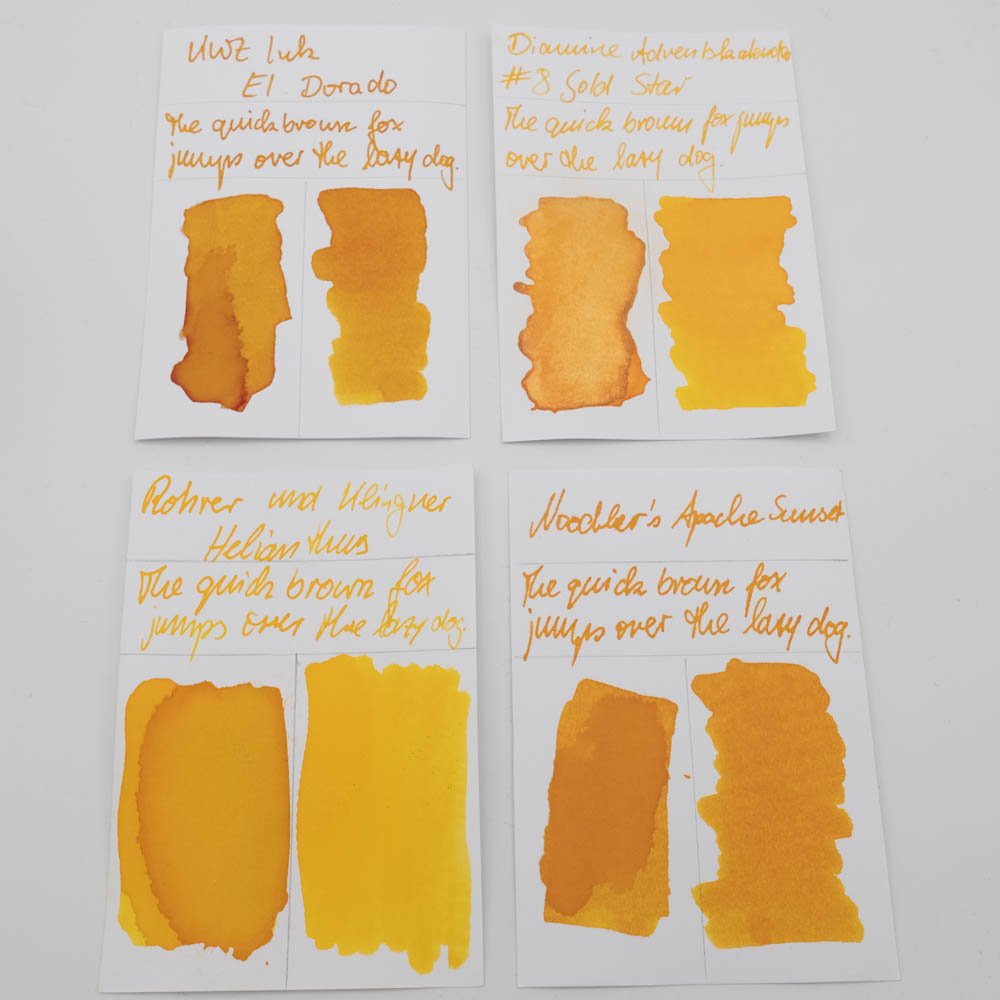 KWZ Ink
El Dorado
The quick brown fox
jumps over the lazy dog.
Diamine Adventskalender
#8 Gold Star
The quick brown fox jumps
over the lazy dog.
Rohrer und Klingner
Helianthus
The quick brown fox
jumps over the lazy dog.
Noodler's Apache Sunset
The quick brown fox
jumps over the lazy dog.